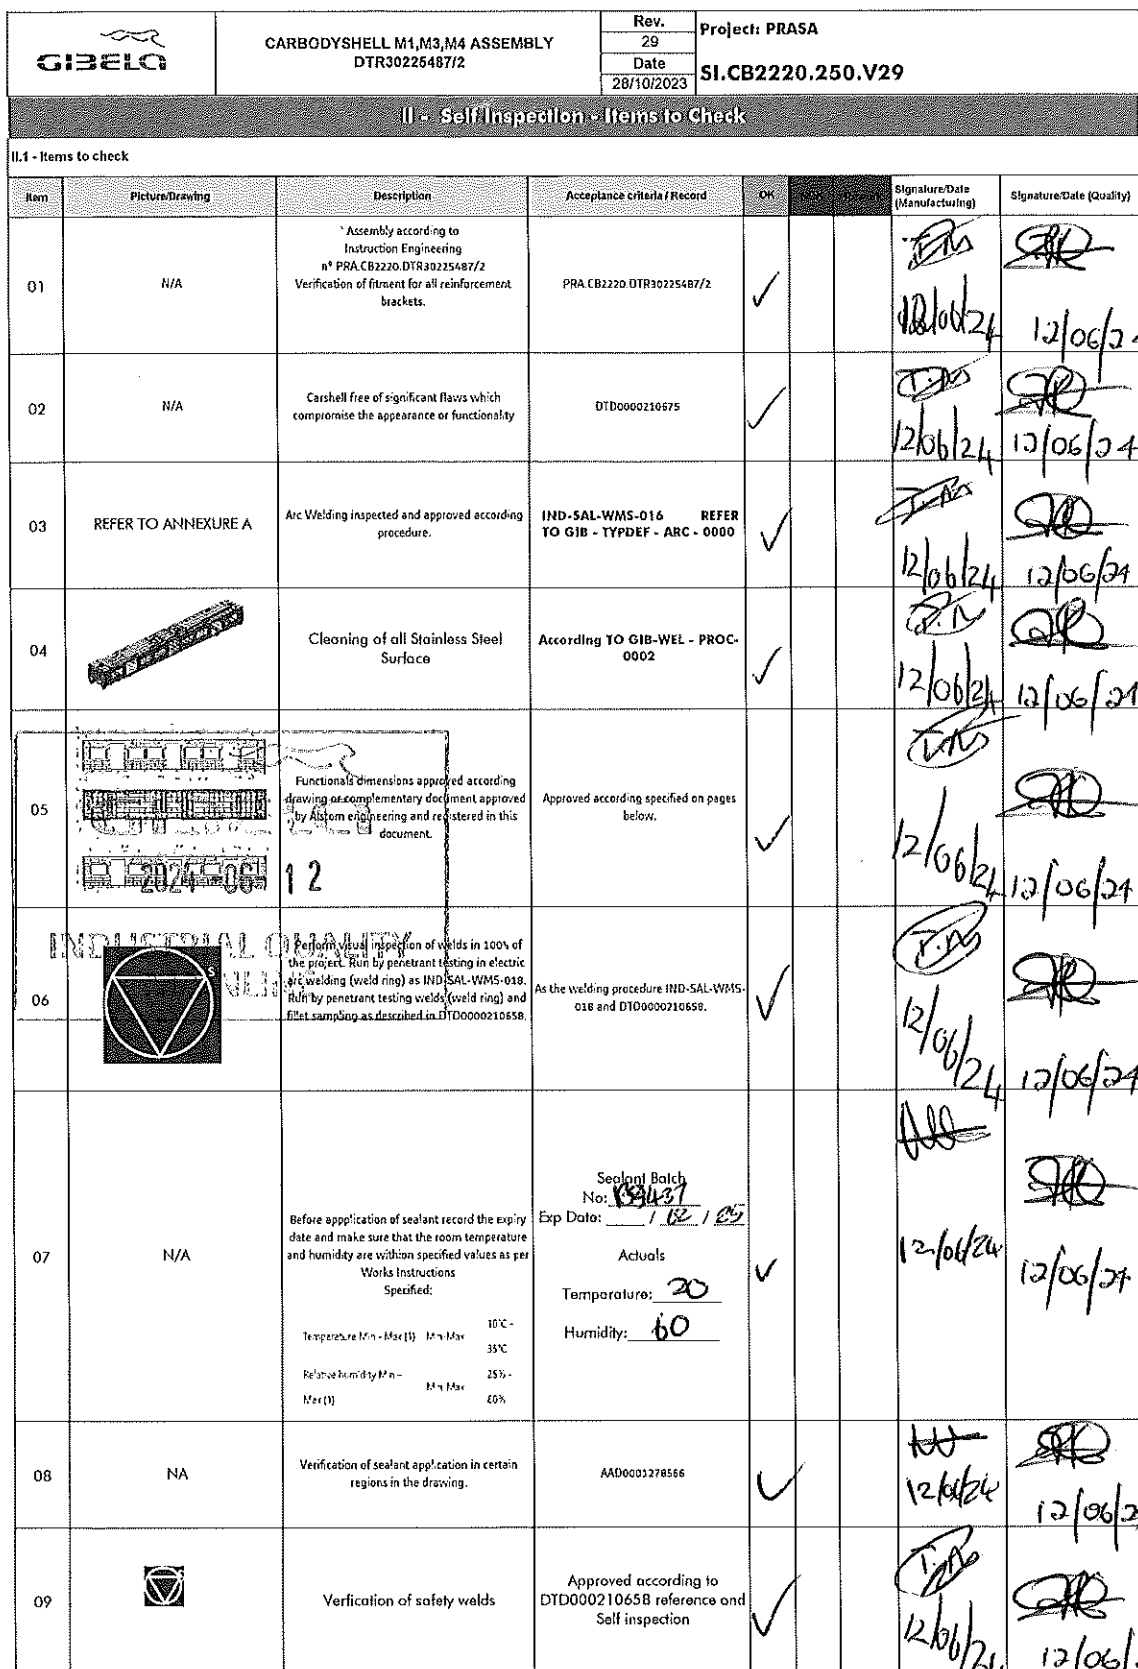 GIBELA
CARBODYSHELL M1,M3,M4 ASSEMBLY
DTR30225487/2
Rev.
29
Date
28/10/2023
Project: PRASA
SI.CB2220.250.V29
II - Self Inspection - Items to Check
II.1 - Items to check
Item
Picture/Drawing
Description
Acceptance criteria / Record
OK
Signature/Date
(Manufacturing)
Signature/Date (Quality)
01
N/A
* Assembly according to
Instruction Engineering
nº PRA.CB2220.DTR30225487/2
Verification of fitment for all reinforcement
brackets.
PRA.CB2220.DTR30225487/2
12/06/24
12/06/2
02
N/A
Carshell free of significant flaws which
compromise the appearance or functionality
DTD0000210675
T.M
12/06/24
12/06/24
03
REFER TO ANNEXURE A
Arc Welding inspected and approved according
procedure.
IND-SAL-WMS-016 REFER
TO GIB - TYPDEF - ARC - 0000
12/06/24
12/06/24
04
Cleaning of all Stainless Steel
Surface
According TO GIB-WEL - PROC-
0002
12/06/24
12/06/24
05
Functionals dimensions approved according
drawing or complementary document approved
by Alstom engineering and registered in this
document.
Approved according specified on pages
below.
12/06/24
12/06/24
2024 -06- 12
INDUSTRIAL QUALITY
06
S
Perform visual inspection of welds in 100% of
the project. Run by penetrant testing in electric
arc welding (weld ring) as IND-SAL-WMS-018.
Run by penetrant testing welds (weld ring) and
fillet sampling as described in DTD0000210658.
As the welding procedure IND-SAL-WMS-
018 and DTD0000210658.
T.M
12/06/24
12/06/24
07
N/A
Before appplication of sealant record the expiry
date and make sure that the room temperature
and humidity are withion specified values as per
Works Instructions
Specified:
Temperature Min - Max (1) Min-Max 10°C - 35°C
Relative humidity Min - Max (1) Min Max 25% - 80%
Sealant Batch
No:
Exp Date: ____ / 02 / 25
Actuals
Temperature: 20
Humidity: 60
12/06/24
12/06/24
08
NA
Verification of sealant application in certain
regions in the drawing.
AAD0001278566
12/06/24
12/06/2
09
Verfication of safety welds
Approved according to
DTD000210658 reference and
Self inspection
12/06/24
12/06/